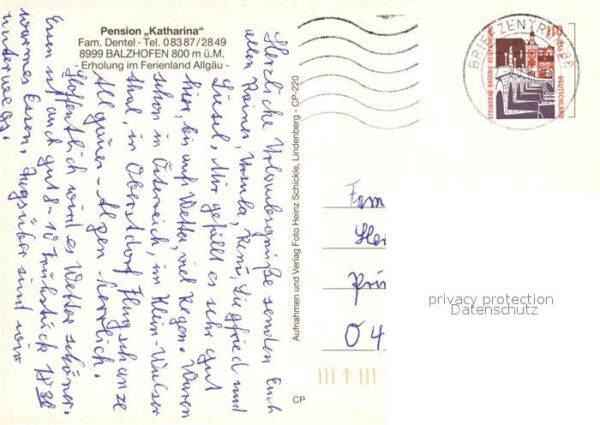 Pension „Katharina"
Fam. Dentel · Tel. 08387/2849
8999 BALZHOFEN 800 m ü.M.
- Erholung im Ferienland Allgäu -
Herzliche Urlaubsgrüße senden Euch
allen Reiner, Ursula, Siegfried und
Lüsel. Mir gefällt es sehr gut
hier, bis auf's Wetter, viel Regen. Waren
schon in Östereich, im Klein-Walser
thal, in Oberstdorf Flugschanze
Allgäuer-Alpen herrlich.
Hoffentlich wird es Wetter schöner.
Essen ist auch gut 8-10 Frühstück 18 30
warmes Essen, tagsüber sind wir
unterwegs.
Aufnahmen und Verlag Foto Heinz Schickle, Lindenberg - CP-220
CP
BRIEFZENTRUM 88
DEUTSCHLAND
Fam
Pri
04
privacy protection
Datenschutz